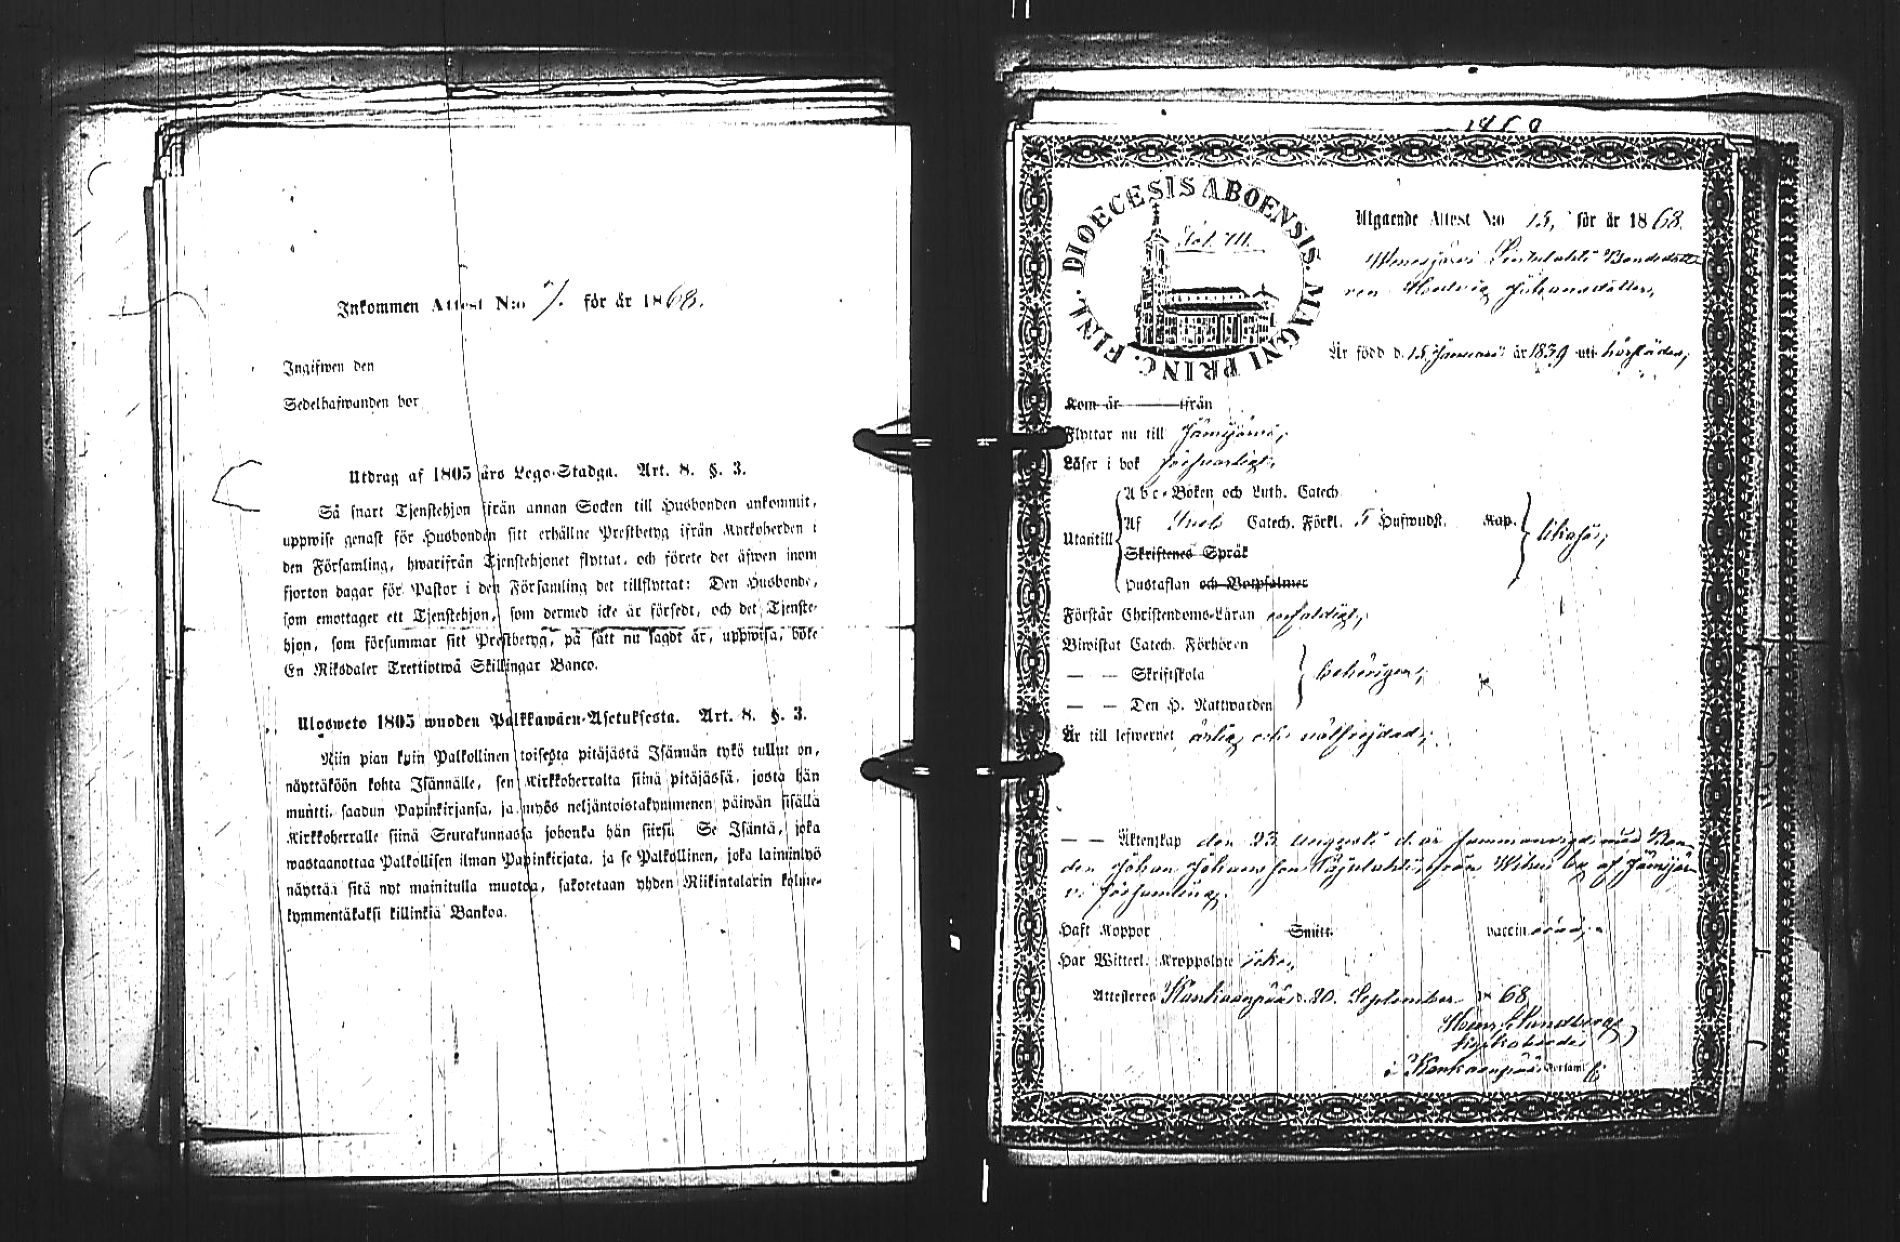 Inkommen Attest N:o 7. för år 1868.
Ingifwen den
Sedelhafwanden bor
Utdrag af 1805 års Lego-Stadga. Art. 8. §. 3.
Så snart Tjenstehjon ifrån annan Socken till Husbonden ankommit,
uppwise genast för Husbonden sitt erhållne Prestbetyg ifrån Kyrkoherden i
den Församling, hwarifrån Tjenstehjonet flyttat, och förete det äfwen inom
fjorton dagar för Pastor i den Församling det tillflyttat: Den Husbonde,
som emottager ett Tjenstehjon, som dermed icke är försedt, och det Tjenste-
hjon, som försummar sitt Prestbetyg, på sätt nu sagdt är, uppwisa, böte
En Riksdaler Trettiotwå Skillingar Banco.
Ulosweto 1805 wuoden Palkkawäen-Asetuksesta. Art. 8. §. 3.
Niin pian kuin Palkollinen toisesta pitäjästä Isännän tykö tullut on,
näyttäköön kohta Isännälle, sen Kirkkoherralta siinä pitäjässä, josta hän
muutti, saadun Papinkirjansa, ja myös neljäntoistakymmenen päiwän sisällä
Kirkkoherralle siinä Seurakunnassa johonka hän siirsi. Se Isäntä, joka
wastaanottaa Palkollisen ilman Papinkirjata, ja se Palkollinen, joka laiminlyö
näyttää sitä nyt mainitulla muotoa, sakotetaan yhden Riikintalarin kolme-
kymmentäkaksi killinkiä Bankoa.
DIOECESIS ABOENSIS. MAGNI PRINC. FINL.
Utgående Attest N:o 15, för år 1868.
Bondedotte
ren Hedvig Johansdotter,
Är född d. 15 Januari år 1839 uti härstädes,
Kom år ifrån
Flyttar nu till Jämijärvi,
Läser i bok försvarligt,
Utantill
A b c-Boken och Luth. Catech.
Af Catech. Förkl. 5 Hufwudst. Kap.
Skriftenes Språk
Hustaflan och Botpsalmer
likaså,
Förstår Christendoms-Läran enfaldigt,
Biwistat Catech. Förhören
— — Skriftskola
— — Den H. Nattwarden
behörigen,
Är till lefwernet ärlig och välfrejdad,
— — Äktenskap den 23 Augusti d. år sammanvigd med Bon-
den Johan Johansson från by af Jämijär-
vi församling.
Haft Koppor Smitt. vaccin.
Har Witterl. Kroppslyte icke,
Attesteres Kankaanpää d. 20. September 18 68
Henr. Sundberg
Kyrkoherde
i Kankaanpää Församl.